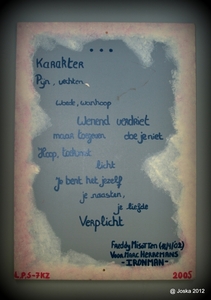 * * *
Karakter
Pijn, vechten
Woede, wanhoop
Wenend verdriet
maar toegeven doe je niet
Hoop, toekomst
licht
Je bent het jezelf
je naasten,
je liefde
Verplicht
Voor Marc Herremans
- IRONMAN -
L.P.S-7KZ 2005
@ Joska 2012